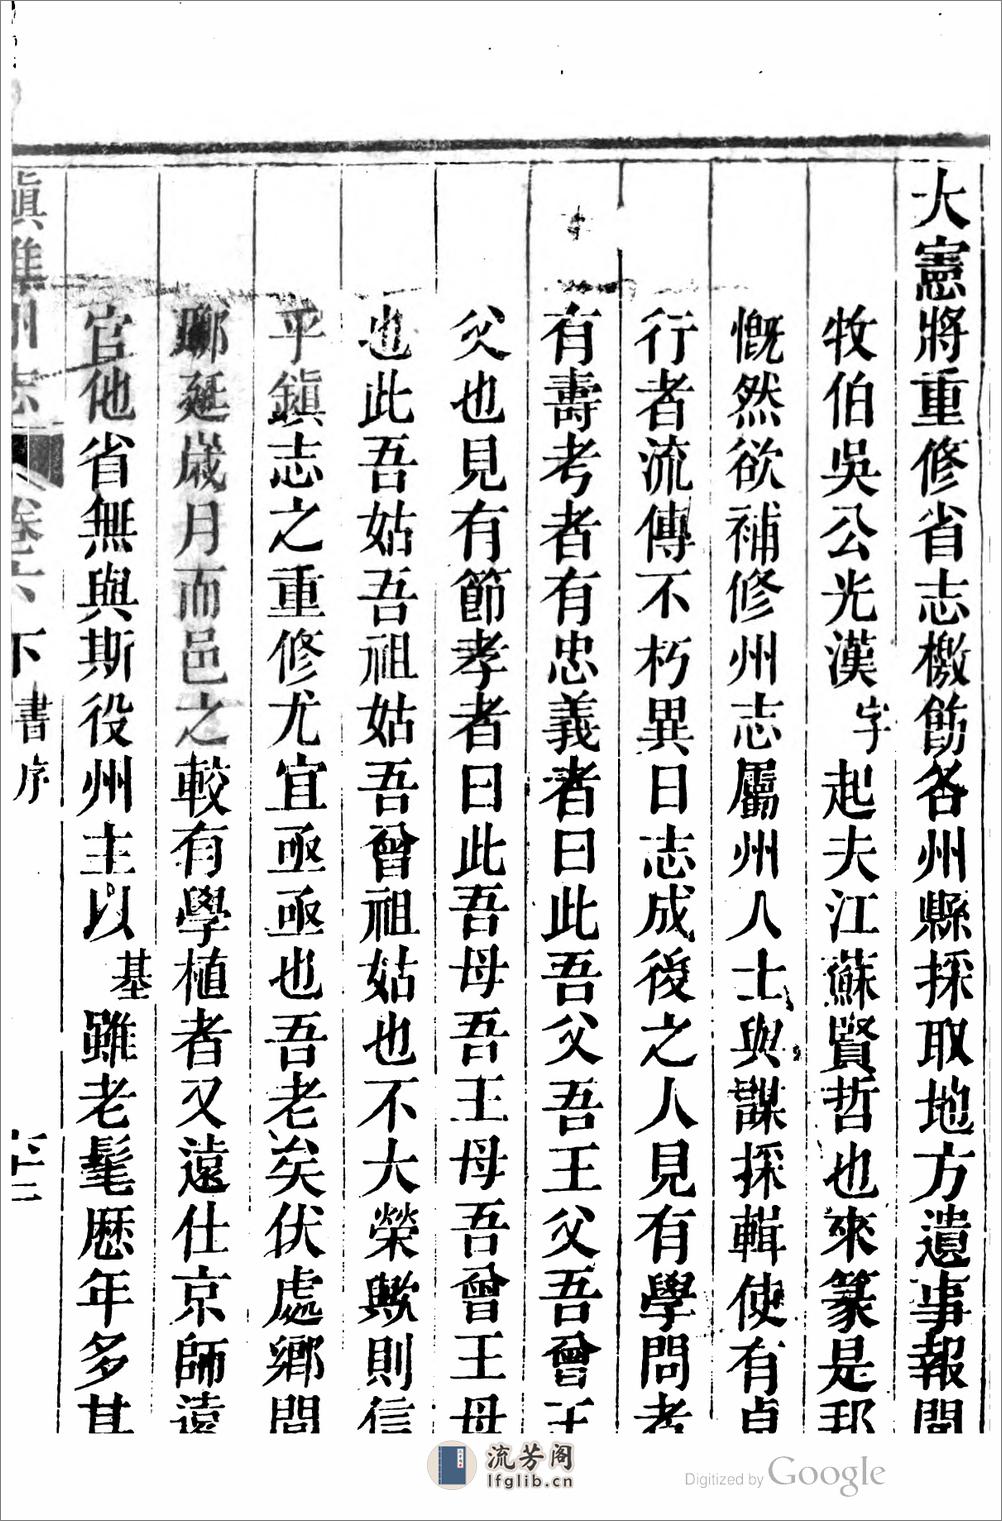 大憲將重修省志檄飭各州縣採取地方遺事報聞
牧伯吳公光漢字起夫江蘇賢哲也來篆是邦
慨然欲補修州志屬州人士與謀採輯使有貞
行者流傳不朽異日志成後之人見有學問者
有壽考者有忠義者曰此吾父吾王父吾曾王
父也見有節孝者曰此吾母吾王母吾曾王母
也此吾姑吾祖姑吾曾祖姑也不大榮歟則信
乎鎮志之重修尤宜亟亟也吾老矣伏處鄉間
瑯延歲月而邑之較有學植者又遠仕京師遠
官他省無與斯役州主以基雖老髦歷年多其
鎮雄州志
卷六下
書序